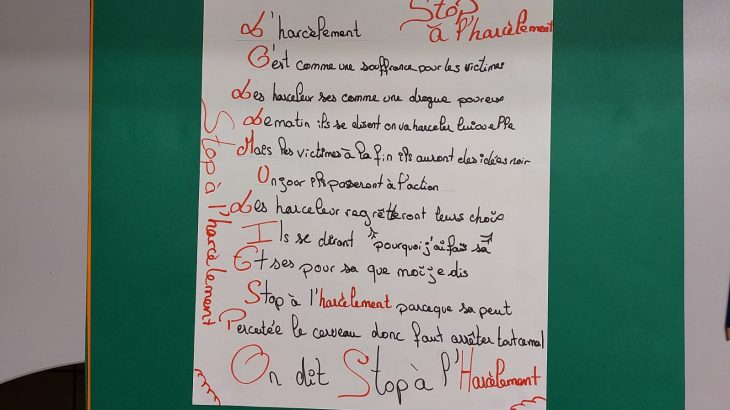 Stop
à l'harcèlement
L'harcèlement
C'est comme une souffrance pour les victimes
Les harceleur ses comme une drogue pour eux
Le matin ils se disent on va harceler lui ou elle
Mais les victimes à la fin ils auront des idées noir
Un jour ils passeront à l'action
Les harceleur regrètteront leurs choix
Ils se diront "pourquoi j'ai fais sa"
Et ses pour sa que moi je dis
Stop à l'harcèlement parceque sa peut
Percutée le cerveau donc faut arrêter tout ce mal
On dit Stop à l'Harcèlement
Stop à l'harcèlement